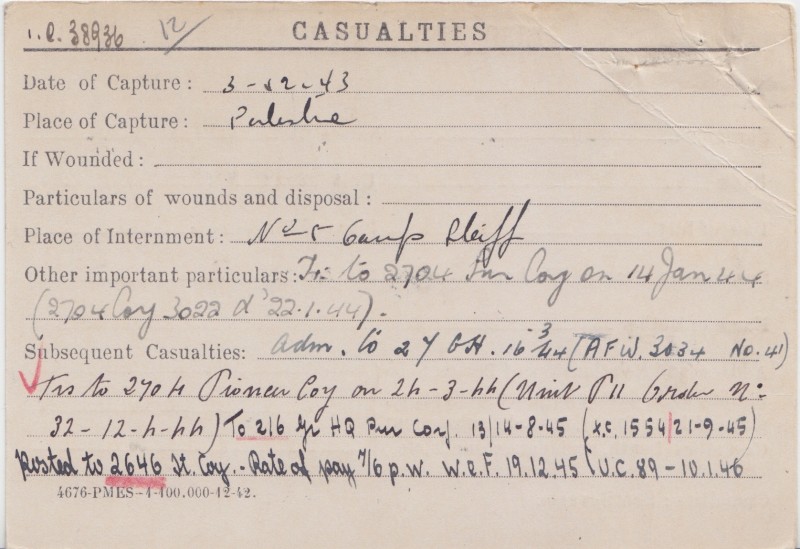 I.C. 38936 12/ CASUALTIES
Date of Capture : 3-12-43
Place of Capture : Palestine
If Wounded :
Particulars of wounds and disposal :
Place of Internment : No 5 Camp
Other important particulars : Trs to 2704 Pnr Coy on 14 Jan 44
(2704 Coy 3022 d' 22.1.44).
Subsequent Casualties: adm. to 27 GH. 16 3/44 (A F W. 3034 No. 41)
Trs to 2704 Pioneer Coy on 24-3-44 (Unit P II Order No
32-12-4-44) To 216 Gr HQ Pnr Corp. 13/14-8-45 (x.c. 1554/21-9-45)
Posted to 2646 St. Coy. - Rate of pay 7/6 p.w. w.e.F. 19.12.45 (U.C. 89 - 10.1.46
4676-PMES-4-100.000-12-42.